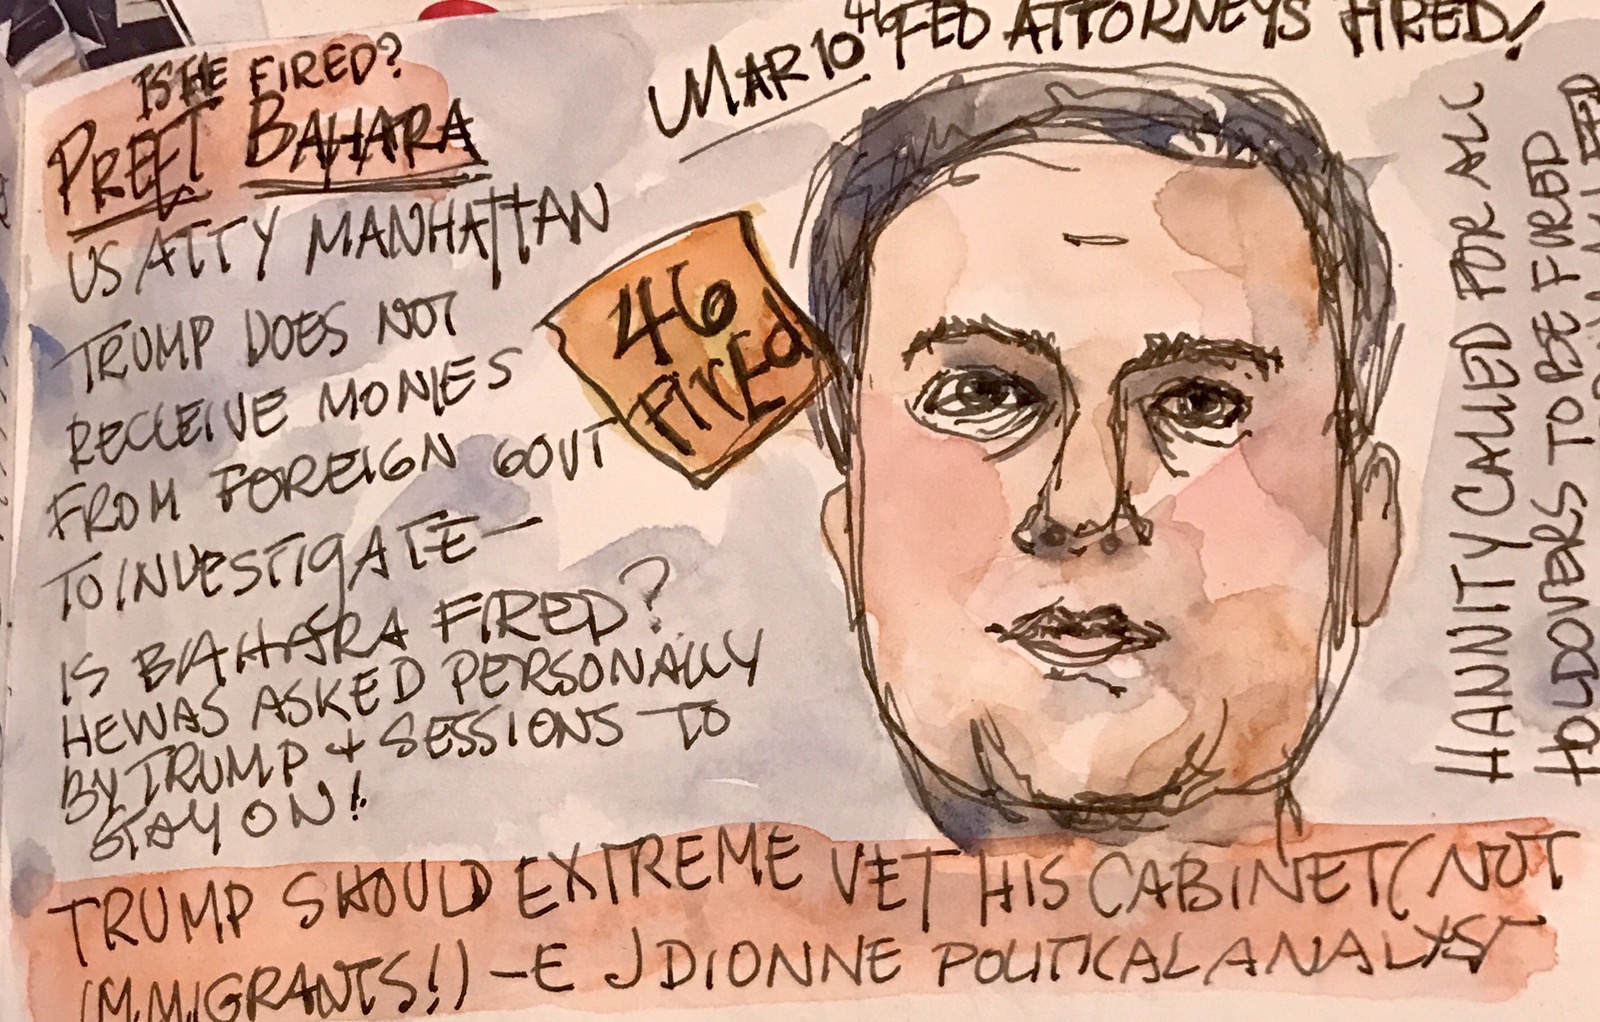 IS HE FIRED?
PREET BAHARA
US ATTY MANHATTAN
TRUMP DOES NOT
RECCEIVE MONIES
FROM FOREIGN GOVT
TO INVESTIGATE—
IS BAHARA FIRED?
HE WAS ASKED PERSONALLY
BY TRUMP + SESSIONS TO
STAY ON!
MAR 10 46 FED ATTORNEYS FIRED!
46
FirEd
HANNITY CALLED FOR ALL
HOLDOVERS TO BE FORED
TRUMP SHOULD EXTREME VET HIS CABINET (NOT
IMMIGRANTS!) —E J DIONNE POLITICAL ANALYST